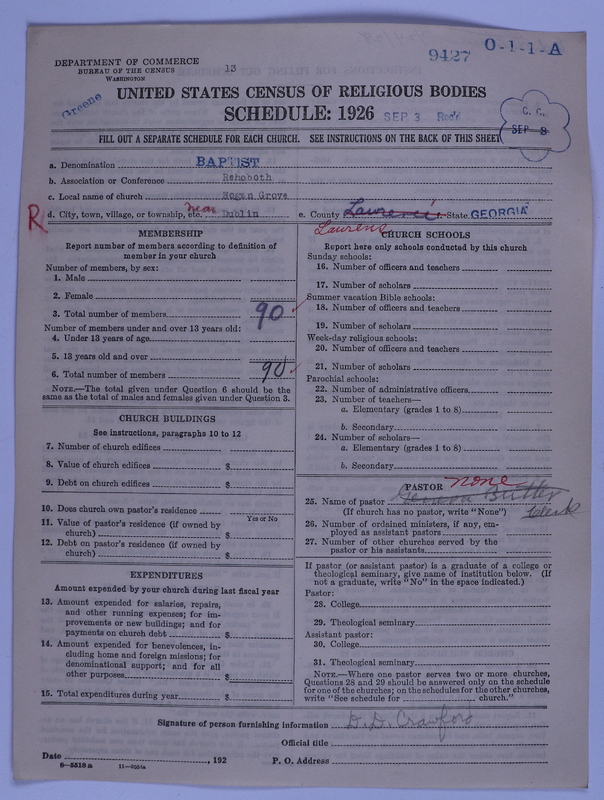 DEPARTMENT OF COMMERCE
BUREAU OF THE CENSUS
WASHINGTON
13
9427
O-1-1-A
Greene
UNITED STATES CENSUS OF RELIGIOUS BODIES
SCHEDULE: 1926
SEP 3 Rec'd
C. C.
SEP 8
FILL OUT A SEPARATE SCHEDULE FOR EACH CHURCH. SEE INSTRUCTIONS ON THE BACK OF THIS SHEET
a. Denomination BAPTIST
b. Association or Conference Rehoboth
c. Local name of church Hogan Grove
R
d. City, town, village, or township, etc. near Dublin e. County Lawrence f. State GEORGIA
Laurens
MEMBERSHIP
Report number of members according to definition of
member in your church
Number of members, by sex:
1. Male
2. Female
3. Total number of members 90
Number of members under and over 13 years old:
4. Under 13 years of age
5. 13 years old and over
6. Total number of members 90
NOTE.—The total given under Question 6 should be the
same as the total of males and females given under Question 3.
CHURCH BUILDINGS
See instructions, paragraphs 10 to 12
7. Number of church edifices
8. Value of church edifices $
9. Debt on church edifices $
10. Does church own pastor's residence
Yes or No
11. Value of pastor's residence (if owned by
church) $
12. Debt on pastor's residence (if owned by
church) $
EXPENDITURES
Amount expended by your church during last fiscal year
13. Amount expended for salaries, repairs,
and other running expenses; for im-
provements or new buildings; and for
payments on church debt $
14. Amount expended for benevolences, in-
cluding home and foreign missions; for
denominational support; and for all
other purposes $
15. Total expenditures during year $
CHURCH SCHOOLS
Report here only schools conducted by this church
Sunday schools:
16. Number of officers and teachers
17. Number of scholars
Summer vacation Bible schools:
18. Number of officers and teachers
19. Number of scholars
Week-day religious schools:
20. Number of officers and teachers
21. Number of scholars
Parochial schools:
22. Number of administrative officers
23. Number of teachers—
a. Elementary (grades 1 to 8)
b. Secondary
24. Number of scholars—
a. Elementary (grades 1 to 8)
b. Secondary
PASTOR none
25. Name of pastor Butler
(If church has no pastor, write "None") Clerk
26. Number of ordained ministers, if any, em-
ployed as assistant pastors
27. Number of other churches served by the
pastor or his assistants
If pastor (or assistant pastor) is a graduate of a college or
theological seminary, give name of institution below. (If
not a graduate, write "No" in the space indicated.)
Pastor:
28. College
29. Theological seminary
Assistant pastor:
30. College
31. Theological seminary
NOTE.—Where one pastor serves two or more churches,
Questions 28 and 29 should be answered only on the schedule
for one of the churches; on the schedules for the other churches,
write "See schedule for church."
Signature of person furnishing information D. D. Crawford
Official title
Date , 192 P. O. Address
6-5518a 11-9054a